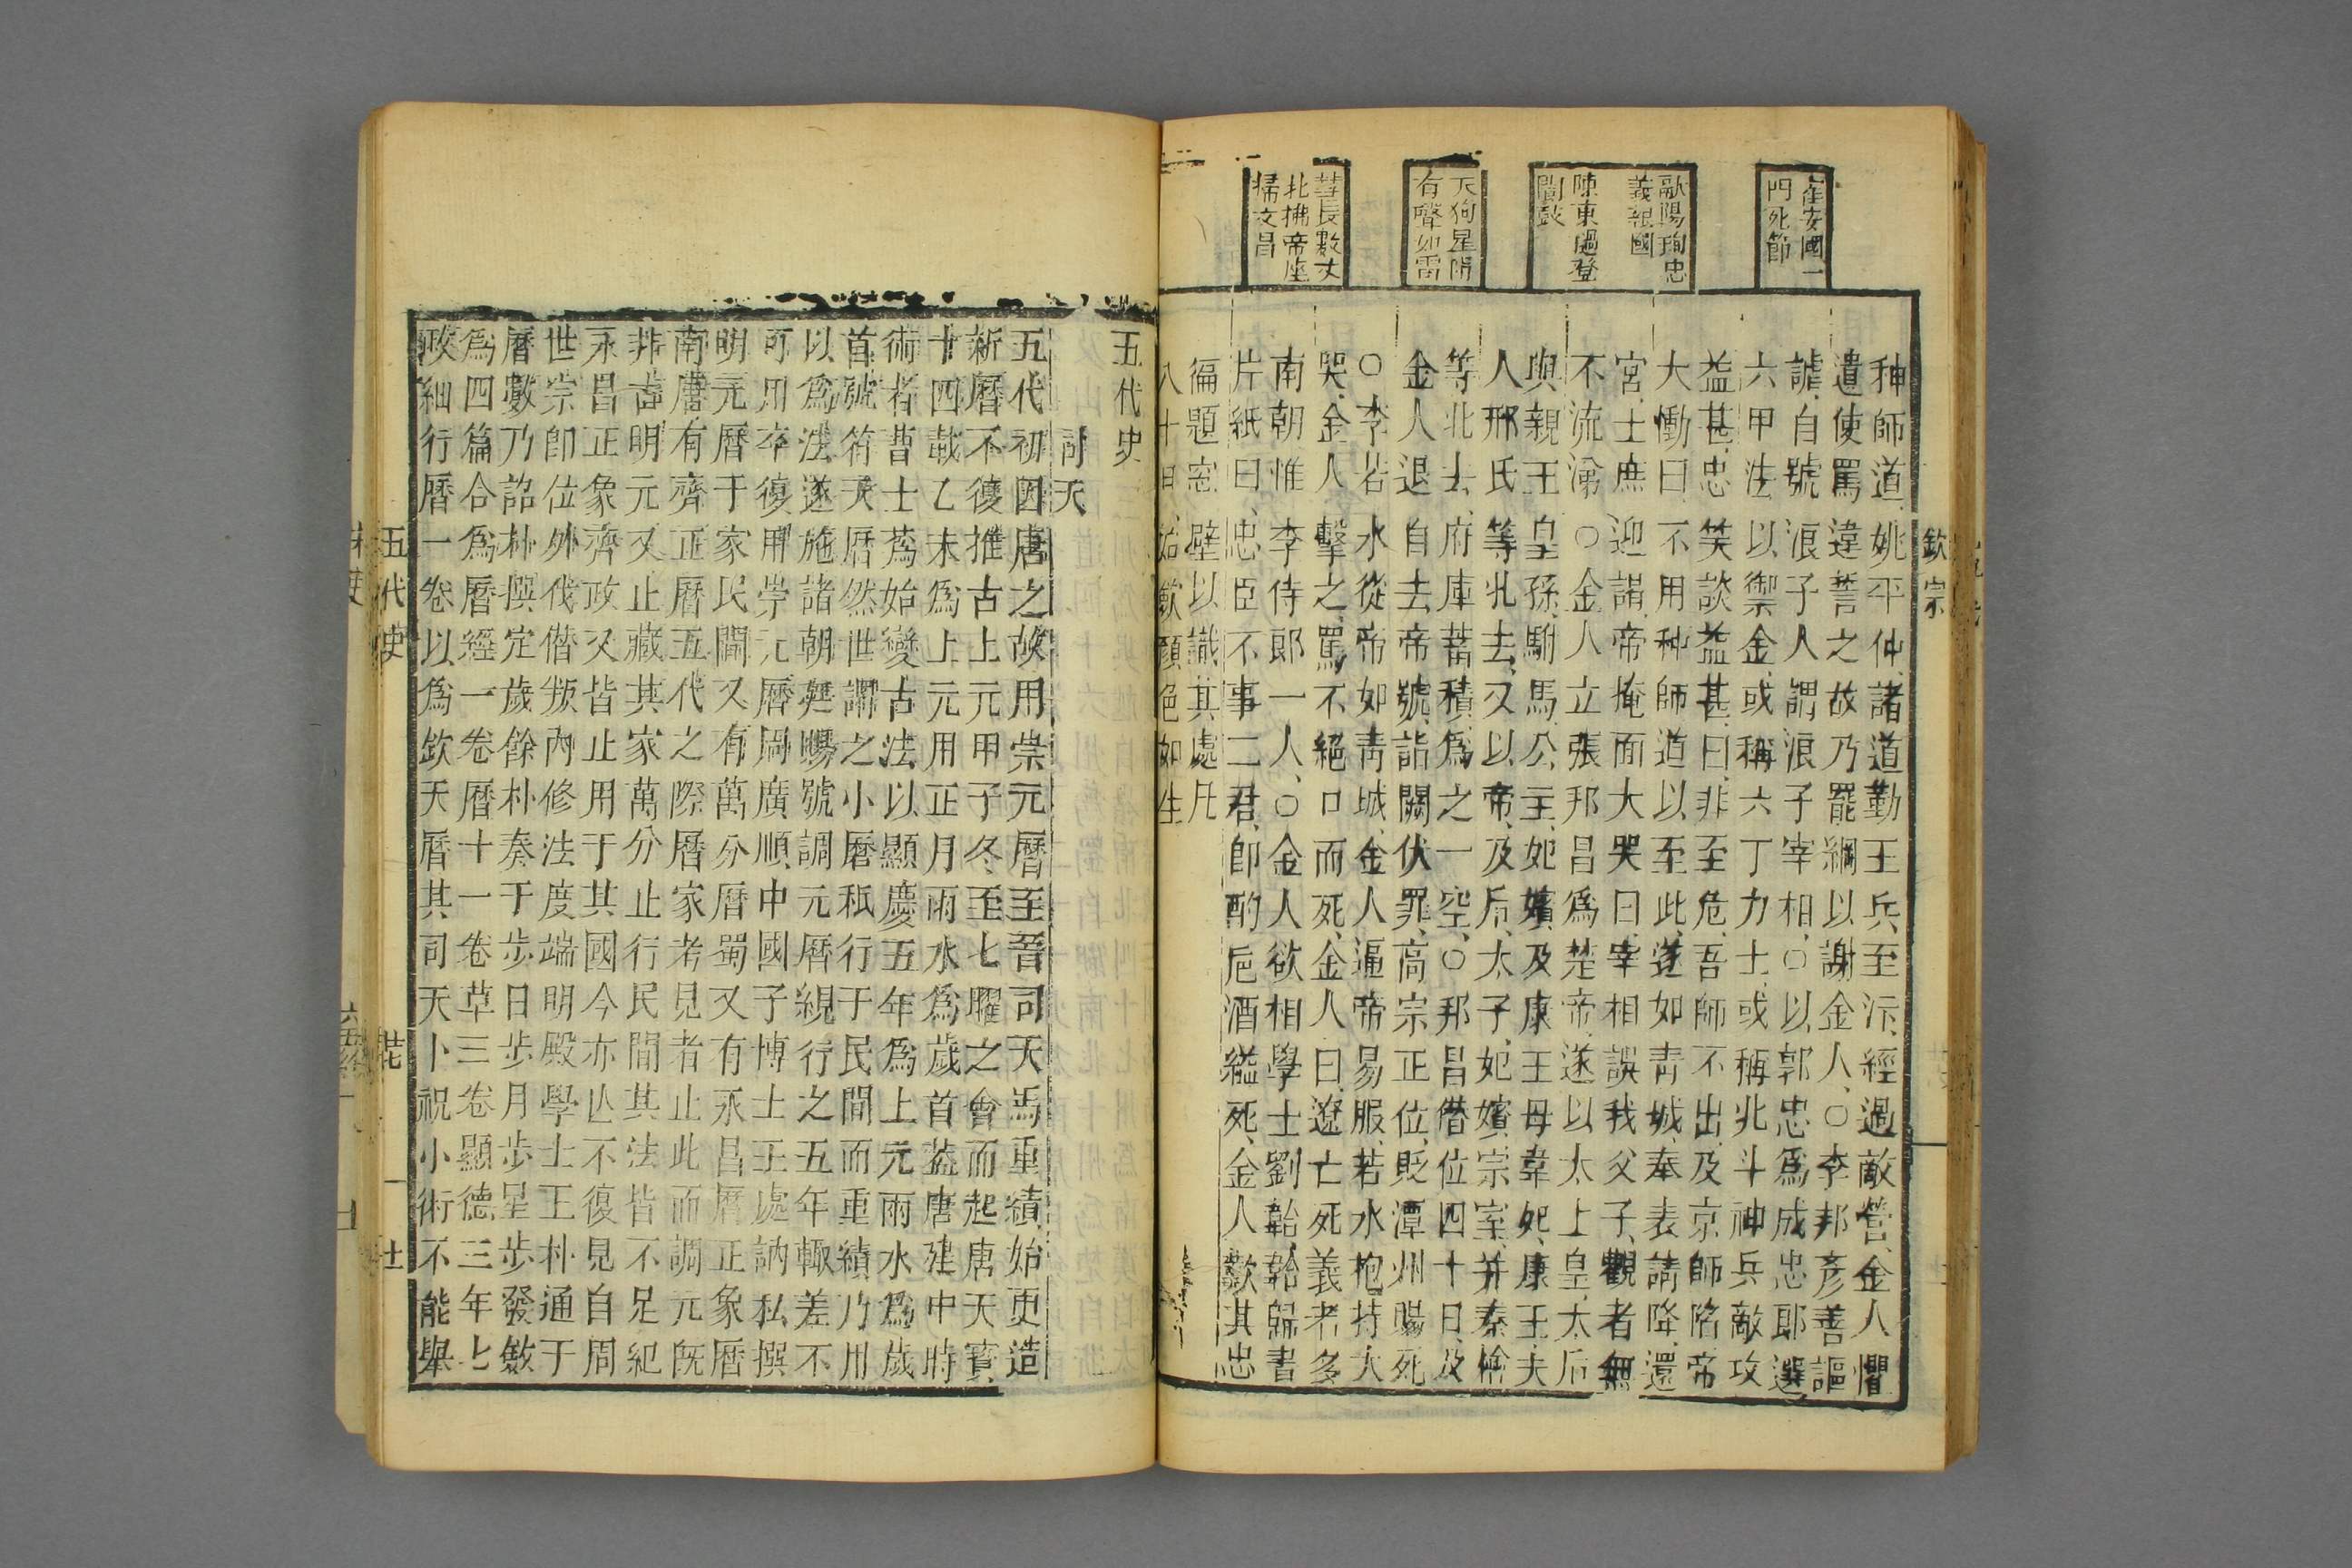 崔安國一
門死節
歐陽珣忠
義報國
陳東過登
聞鼓
天狗星隕
有聲如雷
彗長數丈
北拂帝座
掃文昌
欽宗
种師道姚平仲諸道勤王兵至汴經過敵營金人懼
遣使罵違誓之故乃罷綱以謝金人○李邦彥善謳
謔自號浪子人謂浪子宰相○以郭忠爲成忠郎選
六甲法以禦金或稱六丁力士或稱北斗神兵敵攻
益甚忠笑談益甚曰非至危吾師不出及京師陷帝
大慟曰不用种師道以至此遂如青城奉表請降還
宮士庶迎謁帝掩面大哭曰宰相誤我父子觀者無
不流涕○金人立張邦昌爲楚帝遂以太上皇太后
與親王皇孫駙馬公主妃嬪及康王母韋妃康王夫
人邢氏等北去又以帝及后太子妃嬪宗室并秦檜
等北去府庫蓄積爲之一空○邦昌僭位四十日及
金人退自去帝號詣闕伏罪高宗正位貶潭州賜死
○李若水從帝如青城金人逼帝易服若水抱持大
哭金人擊之罵不絕口而死金人曰遼亡死義者多
南朝惟李侍郎一人○金人欲相學士劉韐韐歸書
片紙曰忠臣不事二君即酌卮酒縊死金人歎其忠
徧題窓壁以識其處凡
八十日始歛顏色如生
五代史
司天
五代初因唐之故用崇元曆至晉司天馬重績始更造
新曆不復推古上元甲子冬至七曜之會而起唐天寶
十四載乙未爲上元用正月雨水爲歲首蓋唐建中時
術者曹士蔿始變古法以顯慶五年爲上元雨水爲歲
首號符天曆然世謂之小曆秖行于民間而重績乃用
以爲法遂施諸朝廷賜號調元曆然行之五年輙差不
可用卒復用崇元曆周廣順中國子博士王處訥私撰
明元曆于家民間又有萬分曆蜀又有永昌曆正象曆
南唐有齊正曆五代之際曆家考見者止此而調元旣
非古明元又止藏其家萬分止行民間其法皆不足紀
永昌正象齊政又皆止用于其國今亦亾不復見自周
世宗即位外伐僭叛內修法度端明殿學士王朴通于
曆數乃詔朴撰定歲餘朴奏于步日步月步星步發斂
爲四篇合爲曆經一卷曆十一卷草三卷顯德三年七
政細行曆一卷以爲欽天曆其司天卜祝小術不能舉
五代史